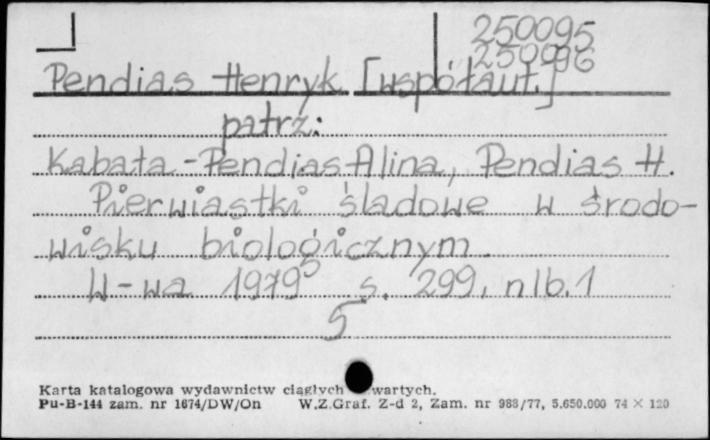 250095
250096
Pendias Henryk [współaut.]
patrz:
Kabata-Pendias Alina, Pendias H.
Pierwiastki śladowe w środo-
wisku biologicznym.
W-wa 1979 s. 299, nlb. 1
5
Karta katalogowa wydawnictw ciągłych wartych.
Pu-B-144 zam. nr 1674/DW/On W.Z.Graf. Z-d 2, Zam. nr 988/77, 5.650.000 74 × 120